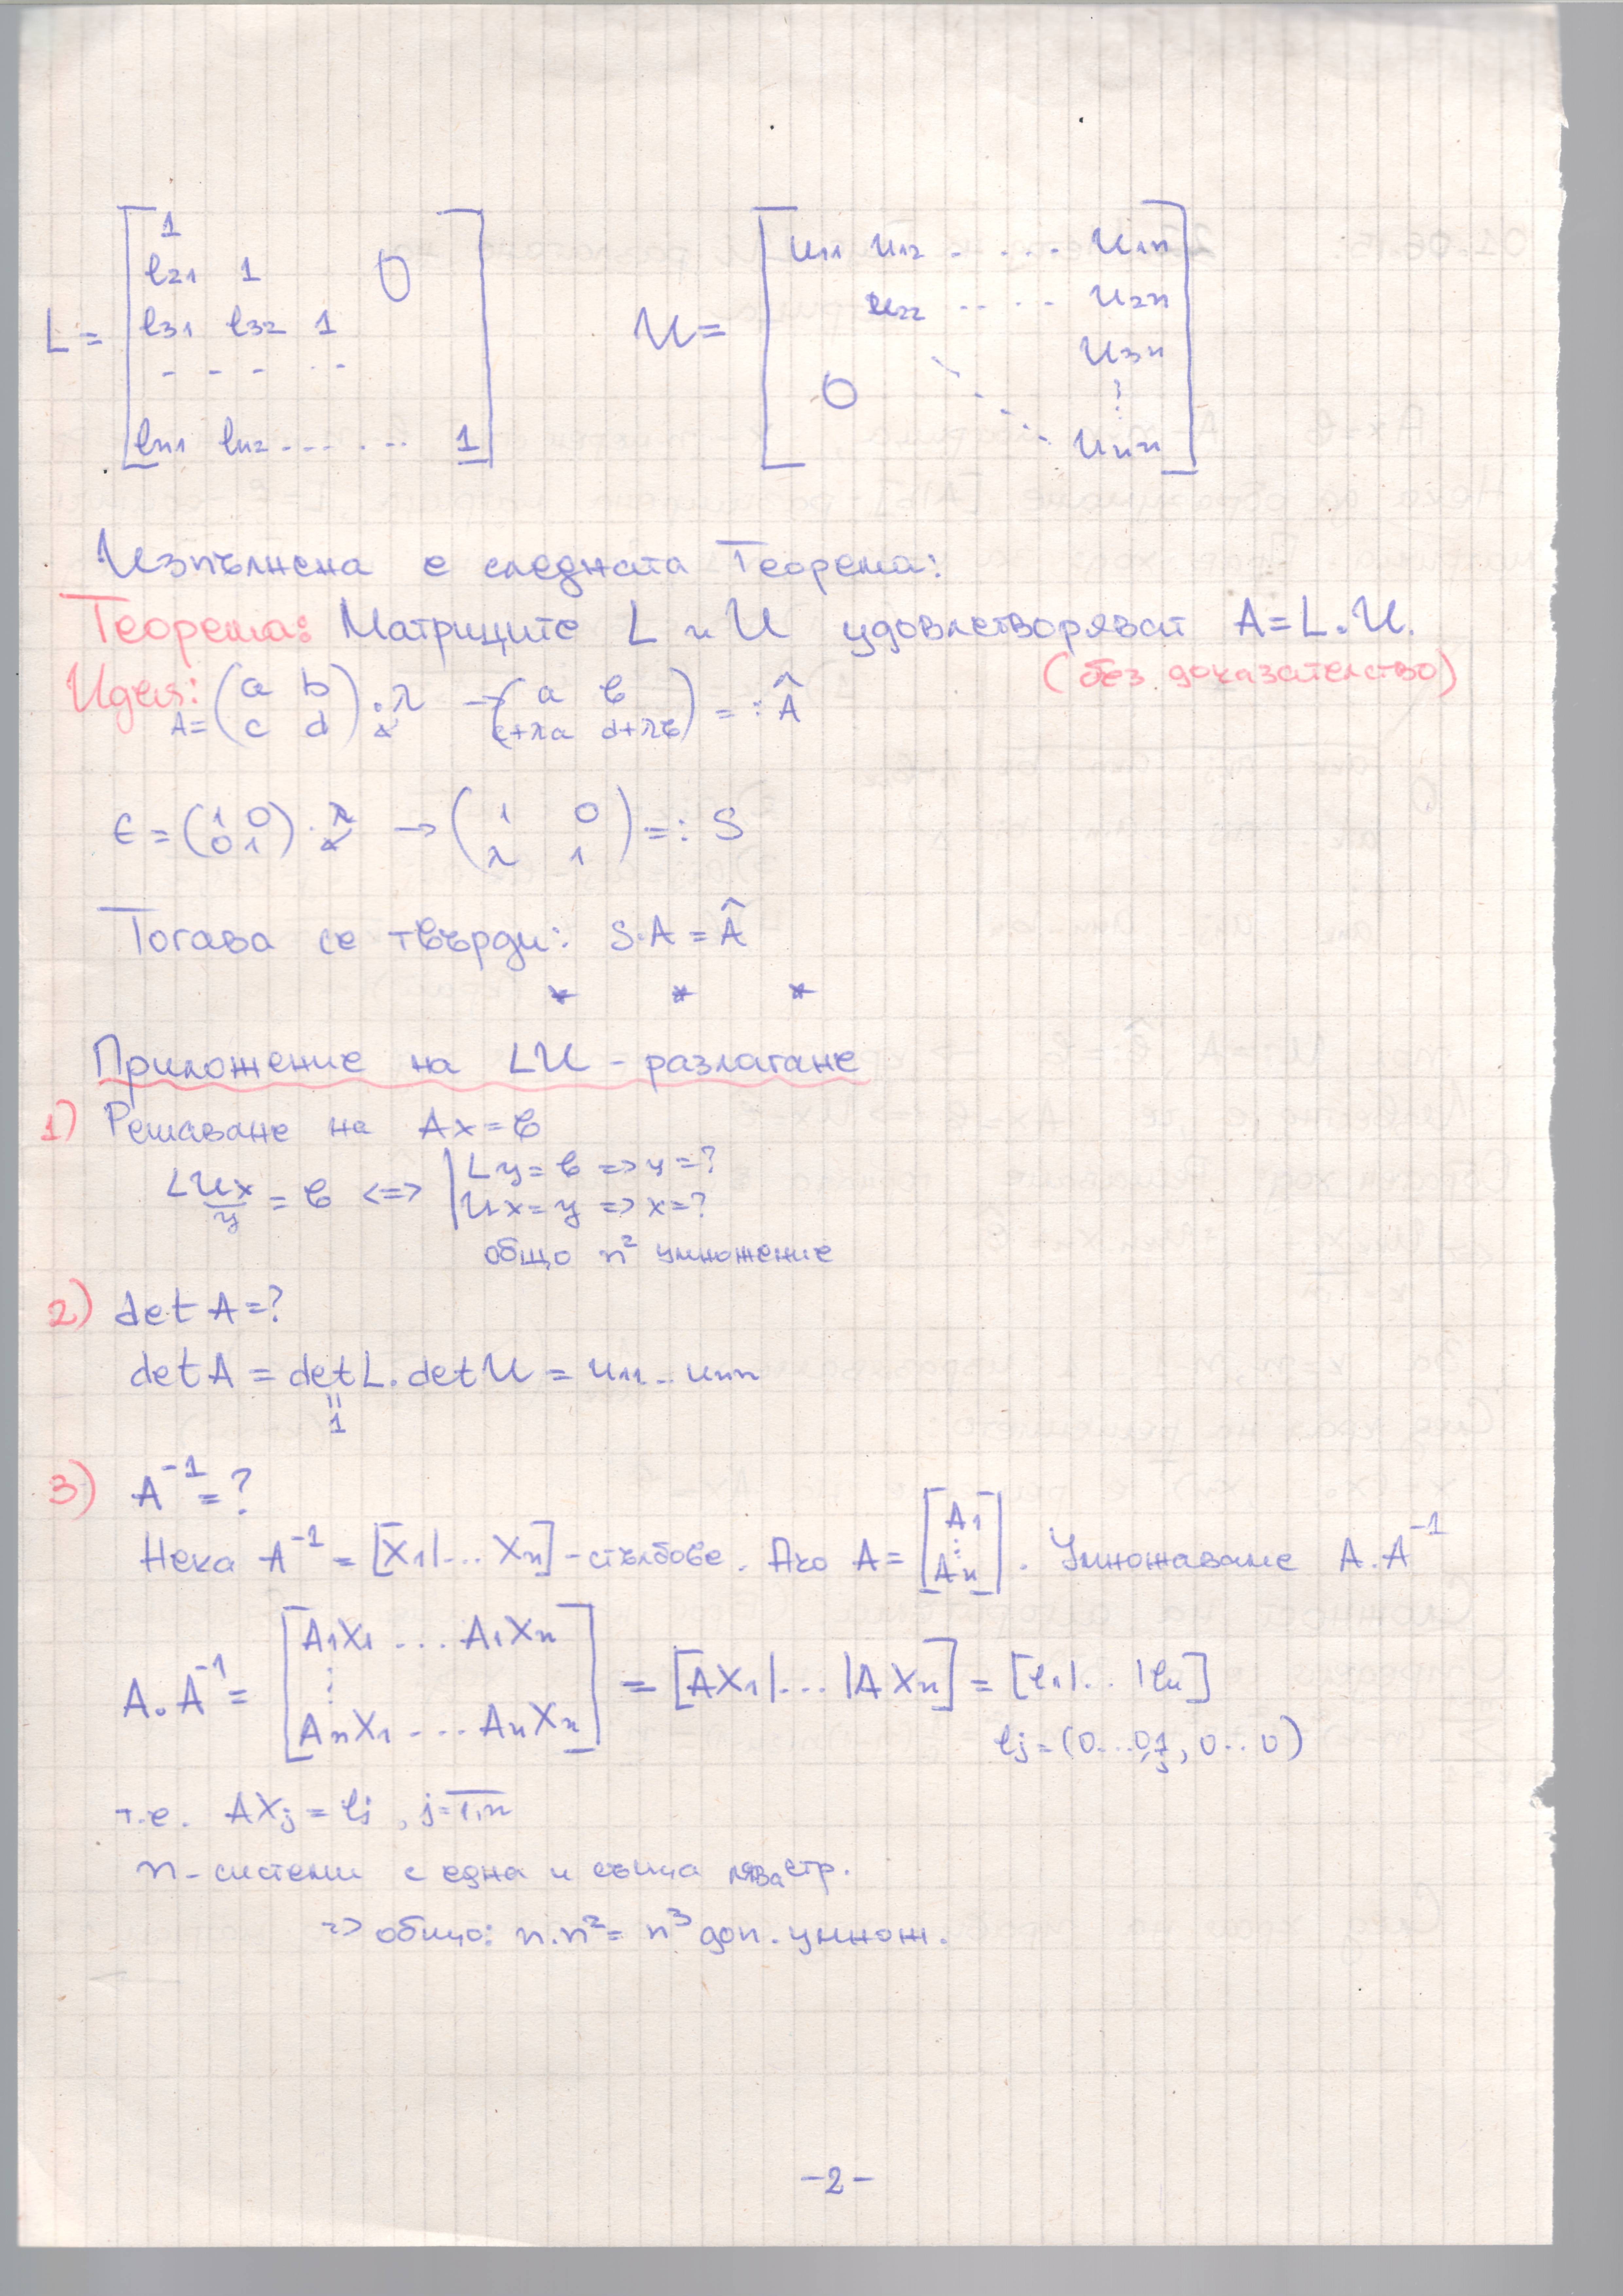 L = [ 1
l21 1 0
l31 l32 1
- - - - -
ln1 ln2 - - - . - - 1 ]
U = [ u11 u12 - . . . u1n
u22 - - . . u2n
u3n
0 ⋱ ⋮
unn ]
Изпълнена е следната Теорема:
Теорема: Матриците L и U удовлетворяват A = L.U.
(без доказателство)
Идея: A = (a b; c d) .λ → (a b; c+λa d+λb) =: Â
E = (1 0; 0 1) .λ → (1 0; λ 1) =: S
Тогава се твърди: S.A = Â
* * *
Приложение на LU - разлагане
1) Решаване на Ax = b
LUx = b <=> | Ly = b => y = ?
y | Ux = y => x = ?
общо n² умножение
2) det A = ?
det A = det L. det U = u11 .. unn
=
1
3) A⁻¹ = ?
Нека A⁻¹ = [X1|... Xn] - стълбове. Ако A = [A1 ⋮ An]. Умножаваме A.A⁻¹
A.A⁻¹ = [A1X1 ... A1Xn ⋮ AnX1 ... AnXn] = [AX1|...|AXn] = [e1|..|en]
ej = (0...0,1,0..0)
j
т.е. AXj = ej , j = 1,n
n - системи с една и съща лява стр.
=> общо: n.n² = n³ доп. умнож.
-2-